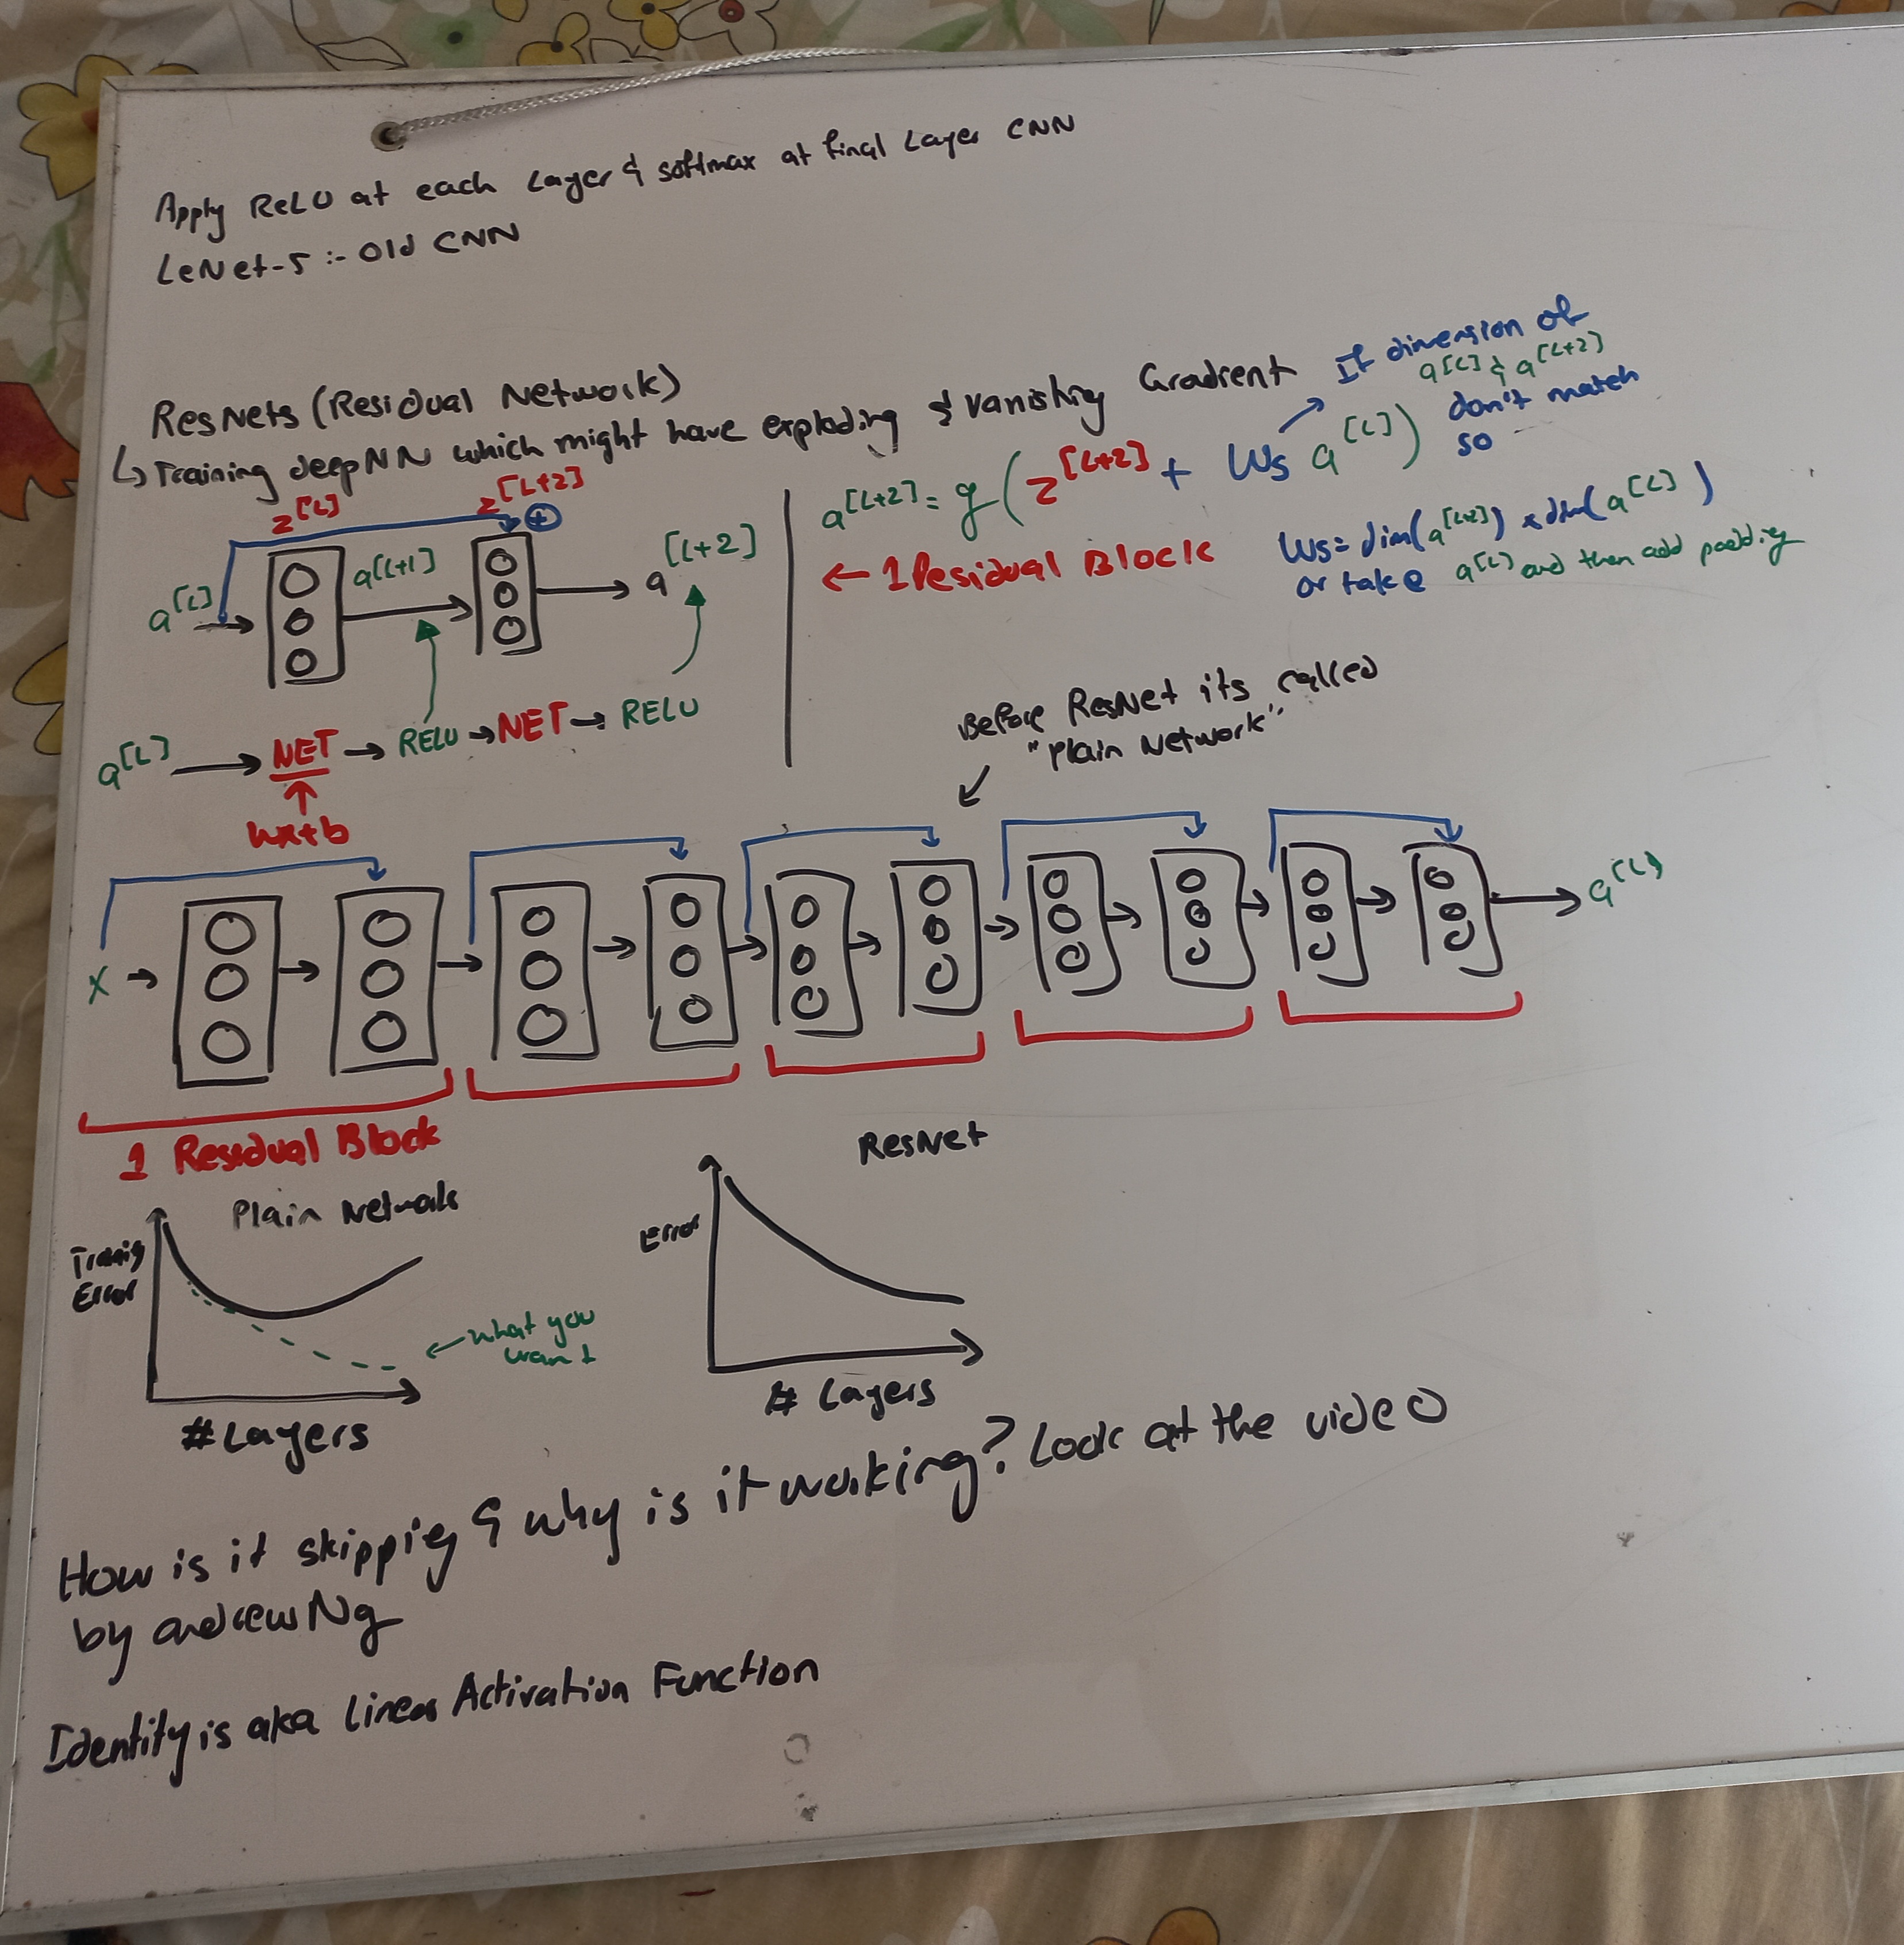 Apply ReLU at each Layer & softmax at final Layer CNN
LeNet-5 :- Old CNN
ResNets (Residual Network)
↳ Training deep NN which might have exploding & vanishing Gradient
If dimension of
a[L] & a[L+2]
don't match
so
z[L]
z[L+2]
a[L+2] = g(z[L+2] + Ws a[L])
a[L]
a[L+1]
+
a[L+2]
← 1 Residual Block
Ws = dim(a[L+2]) x dim(a[L])
or take a[L] and then add padding
a[L] → NET → RELU → NET → RELU
wx+b
Before ResNet its called
"Plain Network"
X
a[L]
1 Residual Block
Plain Network
Training
Error
what you
want
# Layers
ResNet
Error
# Layers
How is it skippig & why is it working? Look at the video
by andrew Ng
Identity is aka linear Activation Function